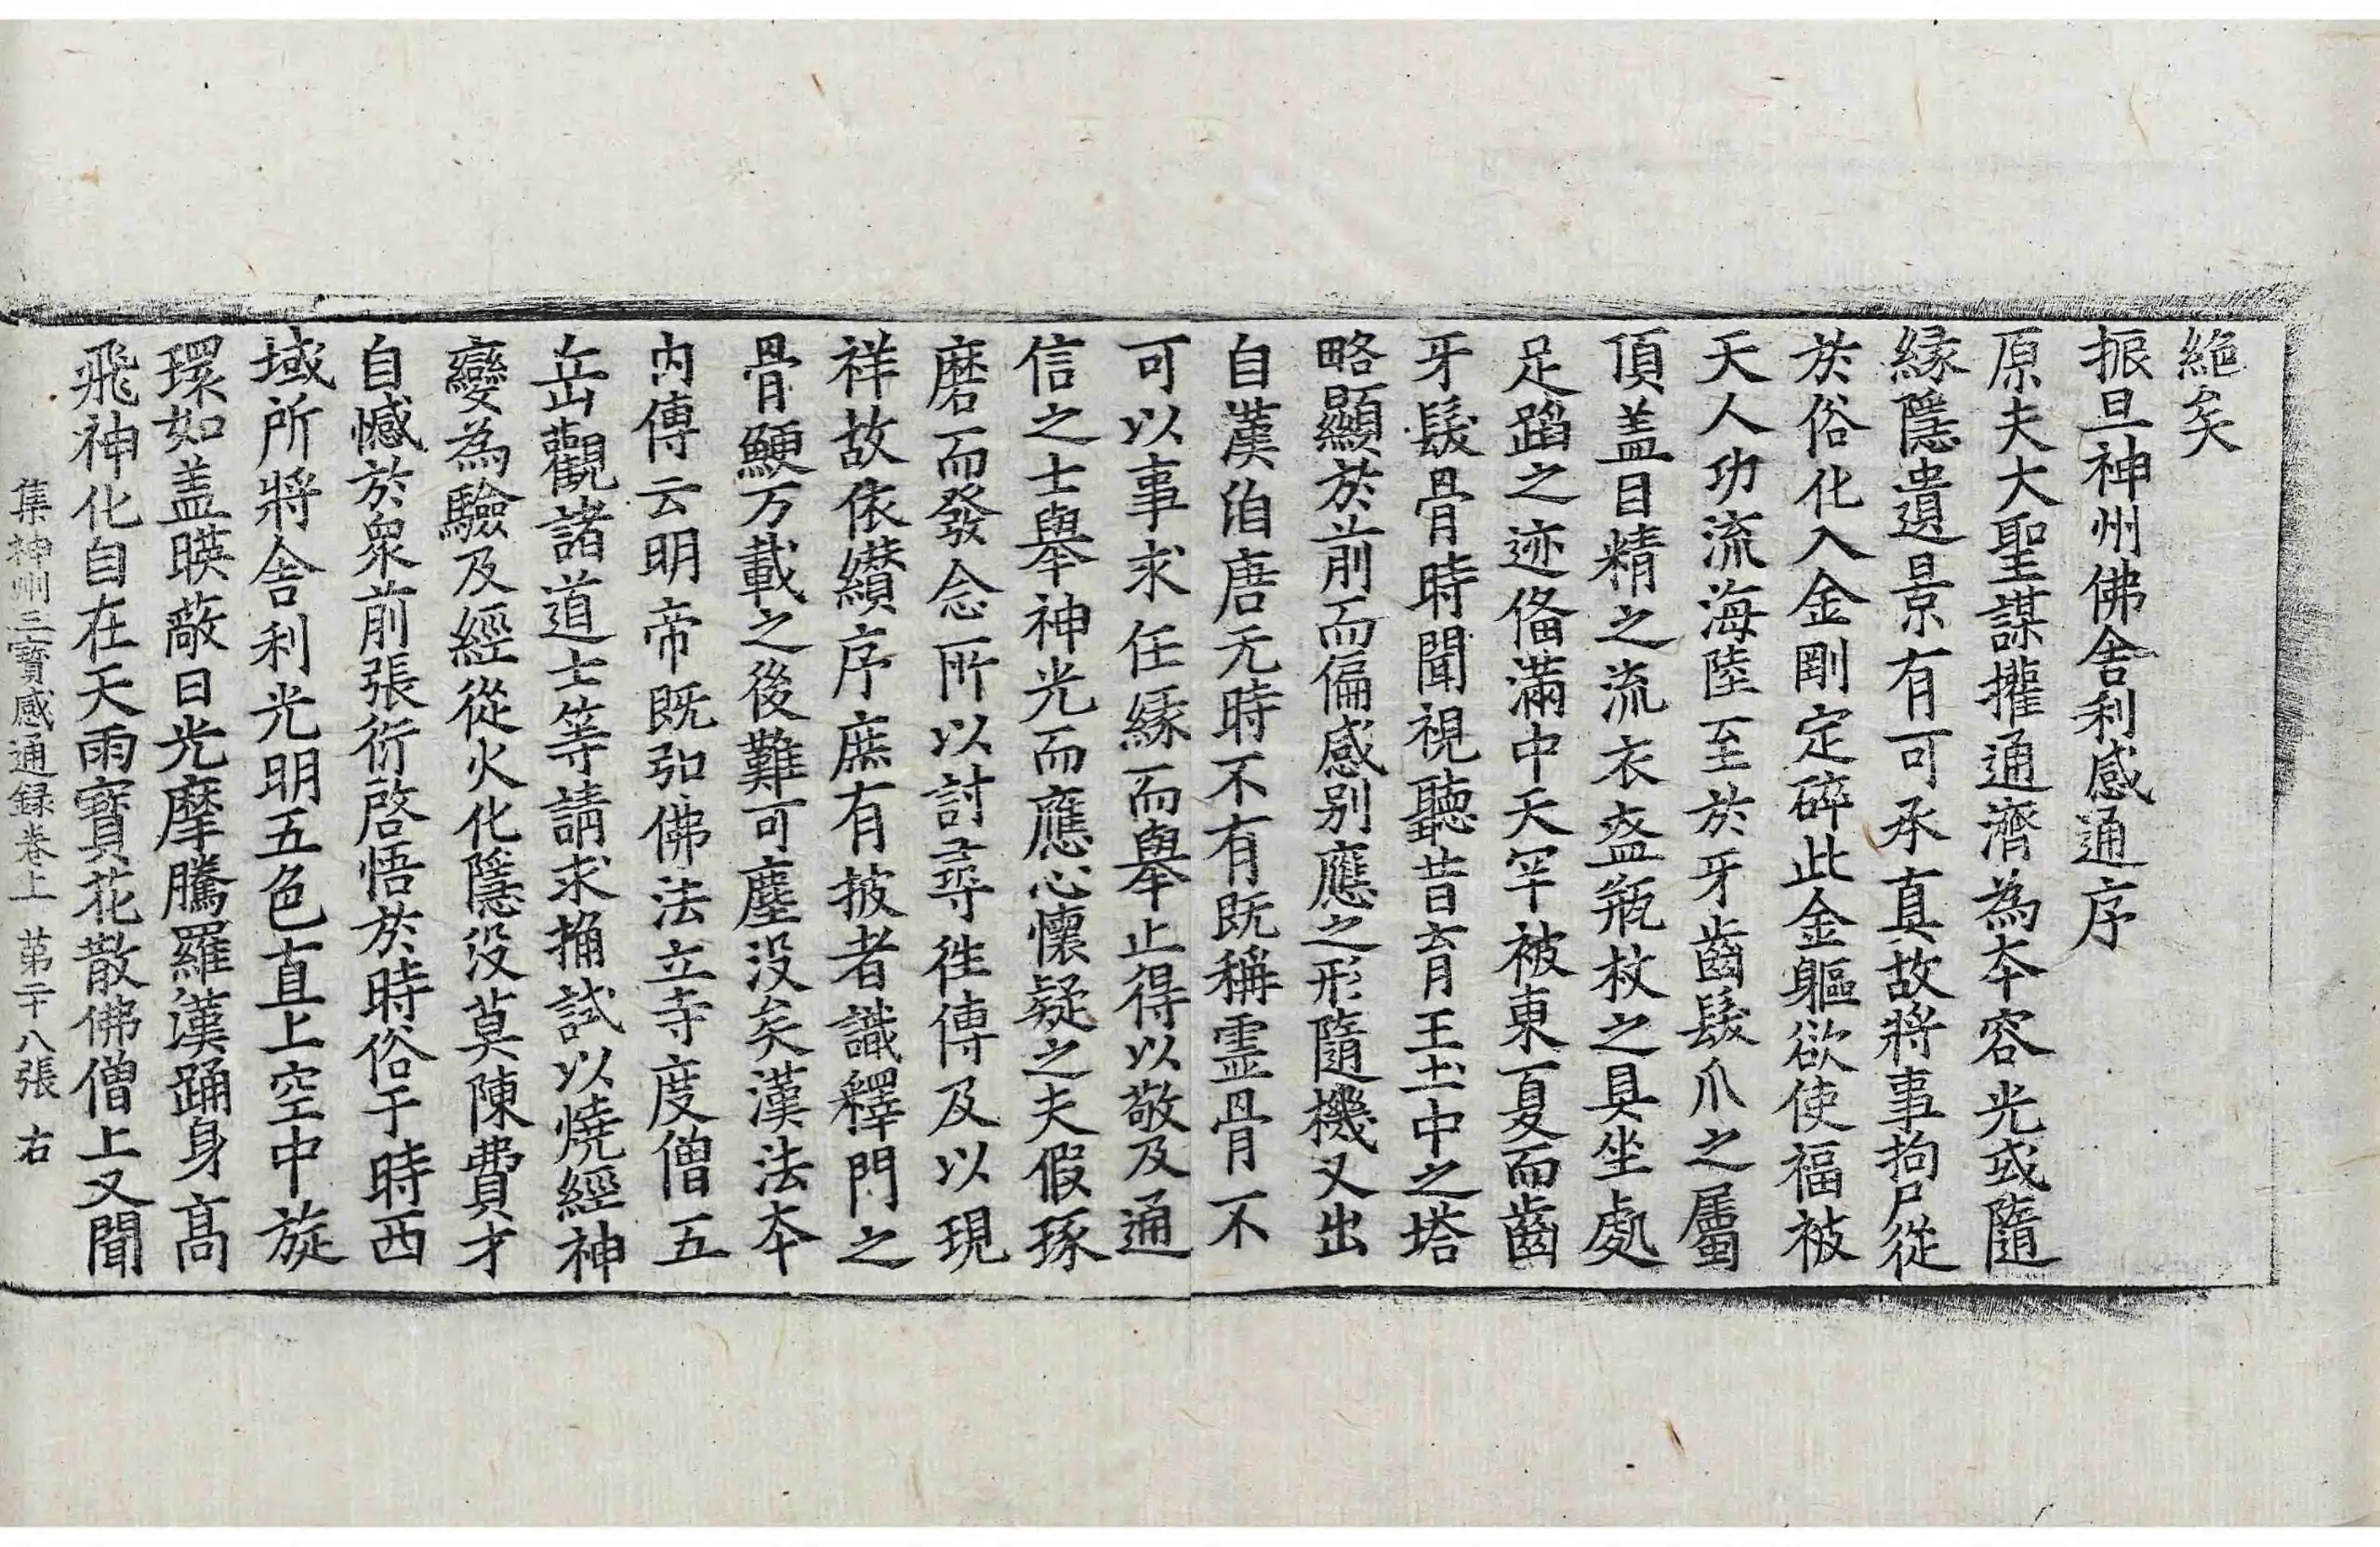 絶矣
振旦神州佛舍利感通序
原夫大聖謀攉通濟為本容光或隨
緣隱遺景有可承真故將事拘尸從
於俗化入金剛定碎此金軀欲使福被
天人功流海陸至於牙齒髮爪之屬
頂盖目精之流衣盔瓶杖之具坐處
足蹈之迹俻滿中天罕被東夏而齒
牙髮骨時聞視聽昔育王土中之塔
略顯於前而偏感别應之形隨機又出
自漢洎唐无時不有既稱霊骨不
可以事求任緣而舉止得以敬及通
信之士舉神光而應心懷疑之夫假琢
磨而發念所以討尋徃傳及以現
祥故依纘序庶有披者識釋門之
骨鯁万載之後難可塵没矣漢法本
内傳云明帝既弘佛法立寺度僧五
岳觀諸道士等請求捔試以燒經神
變為驗及經從火化隱没莫陳費才
自憾於衆前張衍啓悟於時俗于時西
域所將舍利光明五色直上空中旋
環如盖暎蔽日光摩騰羅漢踊身髙
飛神化自在天雨寳花散佛僧上又聞
集神州三寳感通録卷上 苐二十八張 右